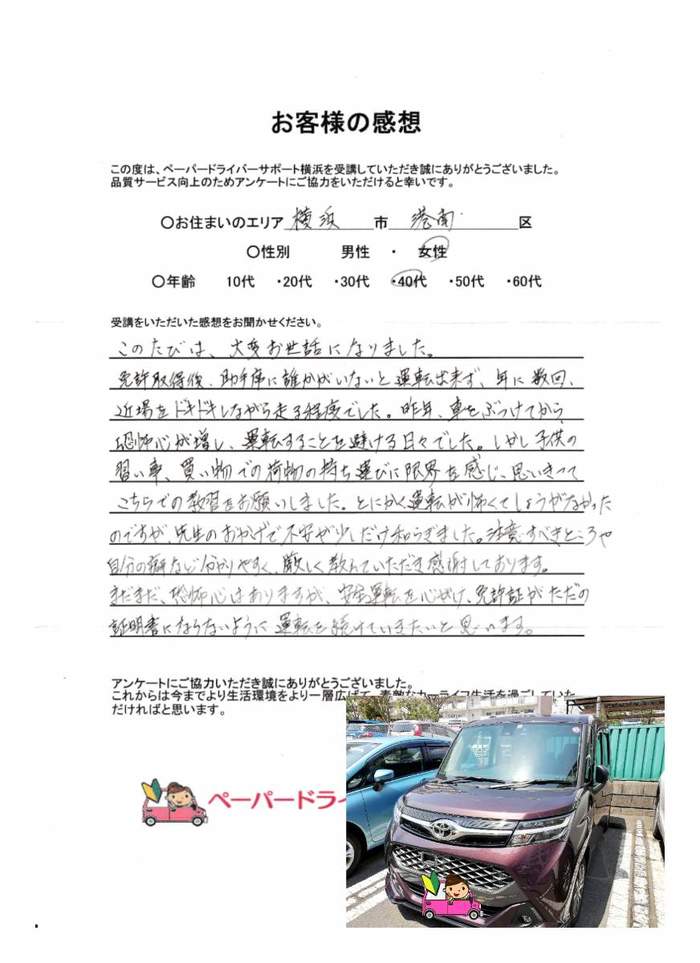 お客様の感想
この度は、ペーパードライバーサポート横浜を受講していただき誠にありがとうございました。
品質サービス向上のためアンケートにご協力をいただけると幸いです。
〇お住まいのエリア 横浜 市 港南 区
〇性別 男性 ・ 女性
〇年齢 10代 ・20代 ・30代 ・40代 ・50代 ・60代
受講をいただいた感想をお聞かせください。
このたびは、大変お世話になりました。
免許取得後、助手席に誰かがいないと運転出来ず、年に数回、
近場をドキドキしながら走る程度でした。昨年、車をぶつけてから、
恐怖心が増し、運転することを避ける日々でした。しかし子供の
習い事、買い物での荷物の持ち運びに限界を感じ、思いきって
こちらでの教習をお願いしました。とにかく運転が怖くてしょうがなかった
のですが、先生のおかげで不安が少しだけ和らぎました。注意すべきところや
自分の癖など分かりやすく、厳しく教えていただき感謝しております。
まだまだ、恐怖心はありますが、安全運転を心がけ、免許証がただの
証明書にならないように運転を続けていきたいと思います。
アンケートにご協力いただき誠にありがとうございました。
これからは今までより生活環境をより一層広げて、素敵なカーライフ生活を過ごしていた
だければと思います。
ペーパードライ